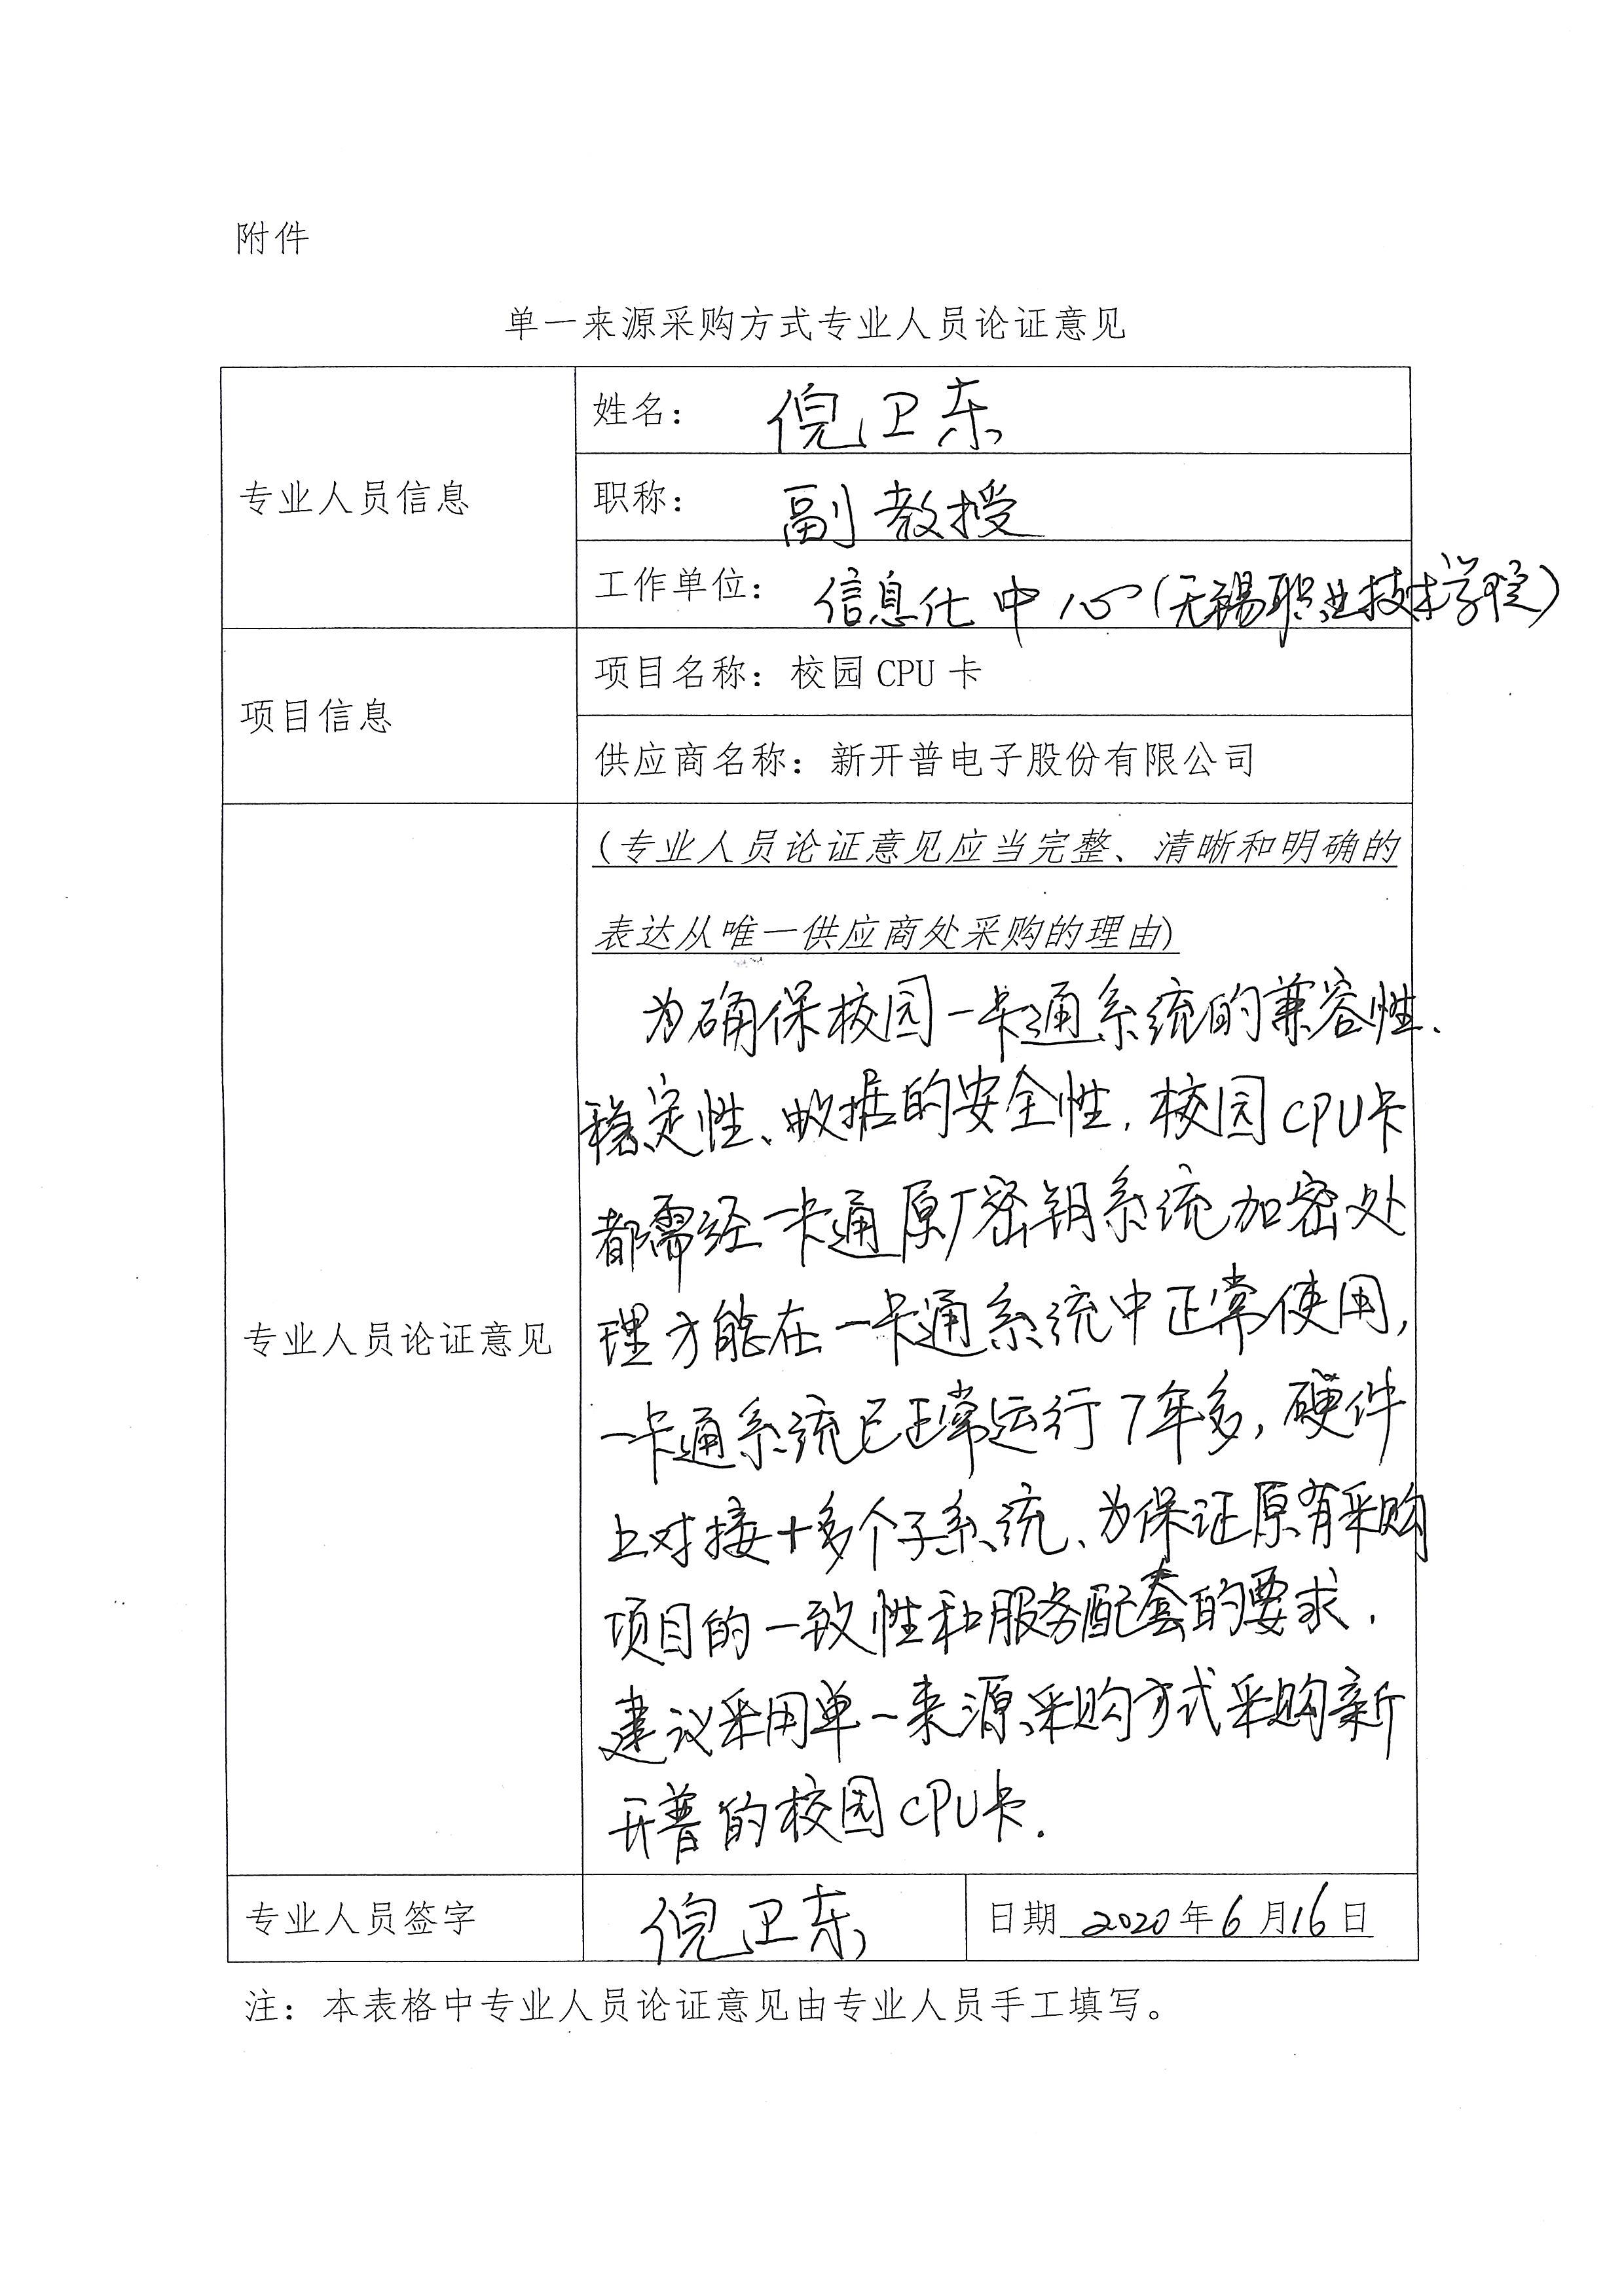 附件
单一来源采购方式专业人员论证意见
专业人员信息
姓名： 倪卫东
职称： 副教授
工作单位： 信息化中心（无锡职业技术学院）
项目信息
项目名称：校园 CPU 卡
供应商名称：新开普电子股份有限公司
专业人员论证意见
（专业人员论证意见应当完整、清晰和明确的
表达从唯一供应商处采购的理由）
为确保校园一卡通系统的兼容性、
稳定性、数据的安全性，校园CPU卡
都需经一卡通原厂密钥系统加密处
理方能在一卡通系统中正常使用，
一卡通系统已正常运行7年多，硬件
上对接十多个子系统、为保证原有采购
项目的一致性和服务配套的要求，
建议采用单一来源采购方式采购新
开普的校园CPU卡.
专业人员签字
倪卫东
日期 2020年6月16日
注：本表格中专业人员论证意见由专业人员手工填写。